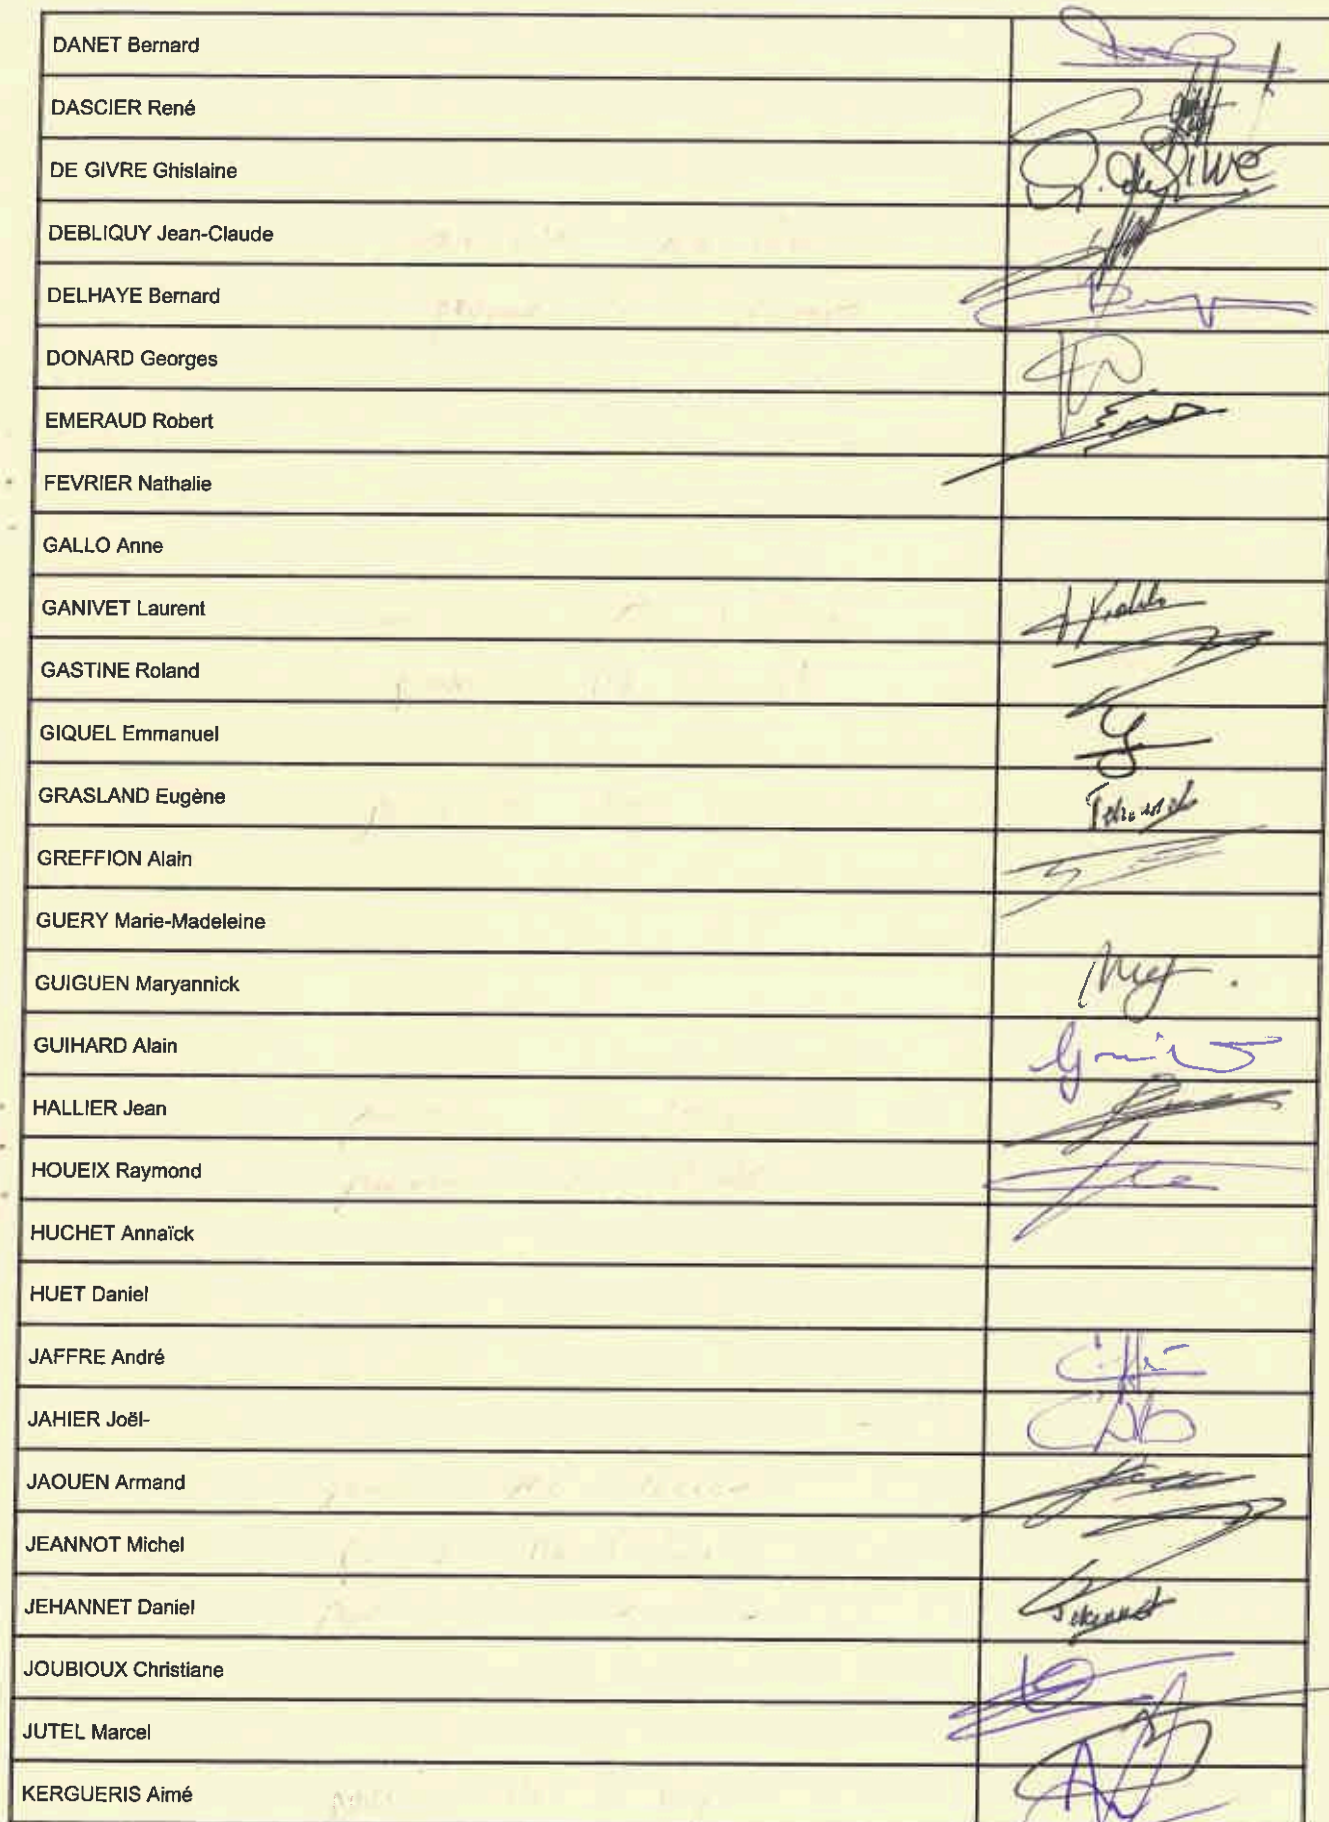 DANET Bernard
DASCIER René
DE GIVRE Ghislaine
G. de Givré
DEBLIQUY Jean-Claude
DELHAYE Bernard
DONARD Georges
EMERAUD Robert
FEVRIER Nathalie
GALLO Anne
GANIVET Laurent
GASTINE Roland
GIQUEL Emmanuel
GRASLAND Eugène
Jehannet
GREFFION Alain
GUERY Marie-Madeleine
GUIGUEN Maryannick
GUIHARD Alain
HALLIER Jean
HOUEIX Raymond
HUCHET Annaïck
HUET Daniel
JAFFRE André
JAHIER Joël-
JAOUEN Armand
JEANNOT Michel
JEHANNET Daniel
Jehannet
JOUBIOUX Christiane
JUTEL Marcel
KERGUERIS Aimé